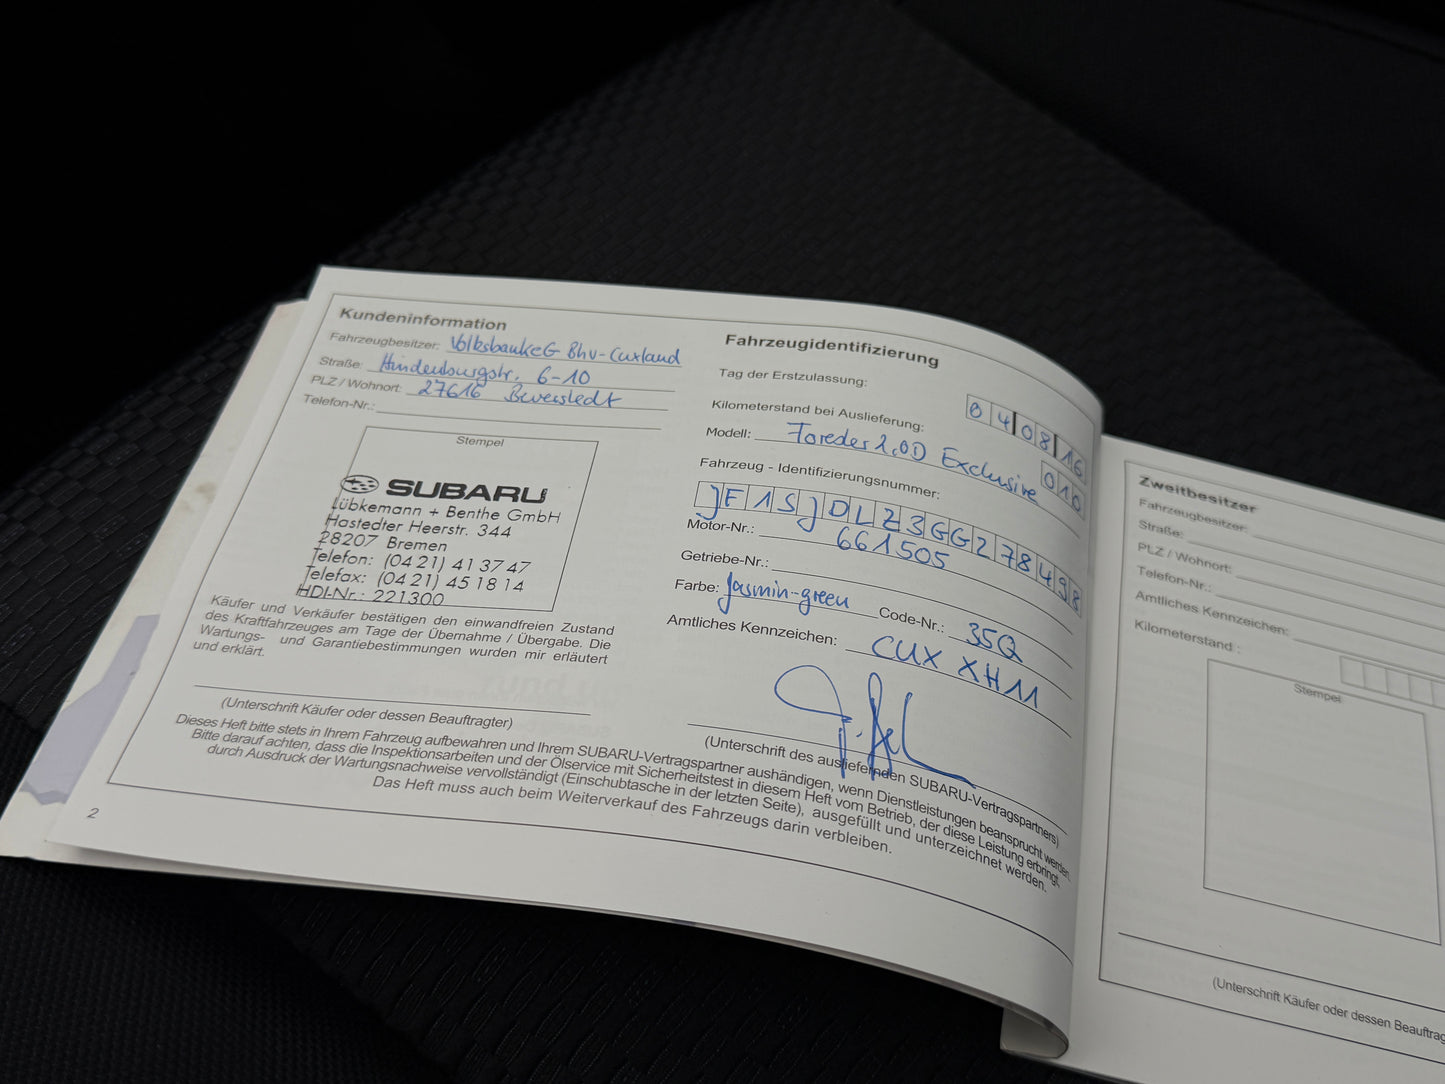 Kundeninformation
Fahrzeugbesitzer: Volksbank eG Bhv-Cuxland
Straße: Hindenburgstr. 6-10
PLZ / Wohnort: 27616 Beverstedt
Telefon-Nr.:
Stempel
SUBARU
Lübkemann + Benthe GmbH
Hastedter Heerstr. 344
28207 Bremen
Telefon: (04 21) 41 37 47
Telefax: (04 21) 45 18 14
HDI-Nr.: 221300
Käufer und Verkäufer bestätigen den einwandfreien Zustand
des Kraftfahrzeuges am Tage der Übernahme / Übergabe. Die
Wartungs- und Garantiebestimmungen wurden mir erläutert
und erklärt.
(Unterschrift Käufer oder dessen Beauftragter)
Fahrzeugidentifizierung
Tag der Erstzulassung: 04 08 16
Kilometerstand bei Auslieferung: 010
Modell: Forester 2,0D Exclusive
Fahrzeug - Identifizierungsnummer:
JF1SJDLZ3GG278498
Motor-Nr.: 661505
Getriebe-Nr.:
Farbe: Jasmin-green Code-Nr.: 35Q
Amtliches Kennzeichen: CUX XH11
(Unterschrift des ausliefernden SUBARU-Vertragspartners)
Dieses Heft bitte stets in Ihrem Fahrzeug aufbewahren und Ihrem SUBARU-Vertragspartner aushändigen, wenn Dienstleistungen beansprucht werden.
Bitte darauf achten, dass die Inspektionsarbeiten und der Ölservice mit Sicherheitstest in diesem Heft vom Betrieb, der diese Leistung erbringt,
durch Ausdruck der Wartungsnachweise vervollständigt (Einschubtasche in der letzten Seite), ausgefüllt und unterzeichnet werden.
Das Heft muss auch beim Weiterverkauf des Fahrzeugs darin verbleiben.
2
Zweitbesitzer
Fahrzeugbesitzer:
Straße:
PLZ / Wohnort:
Telefon-Nr.:
Amtliches Kennzeichen:
Kilometerstand :
Stempel
(Unterschrift Käufer oder dessen Beauftrag